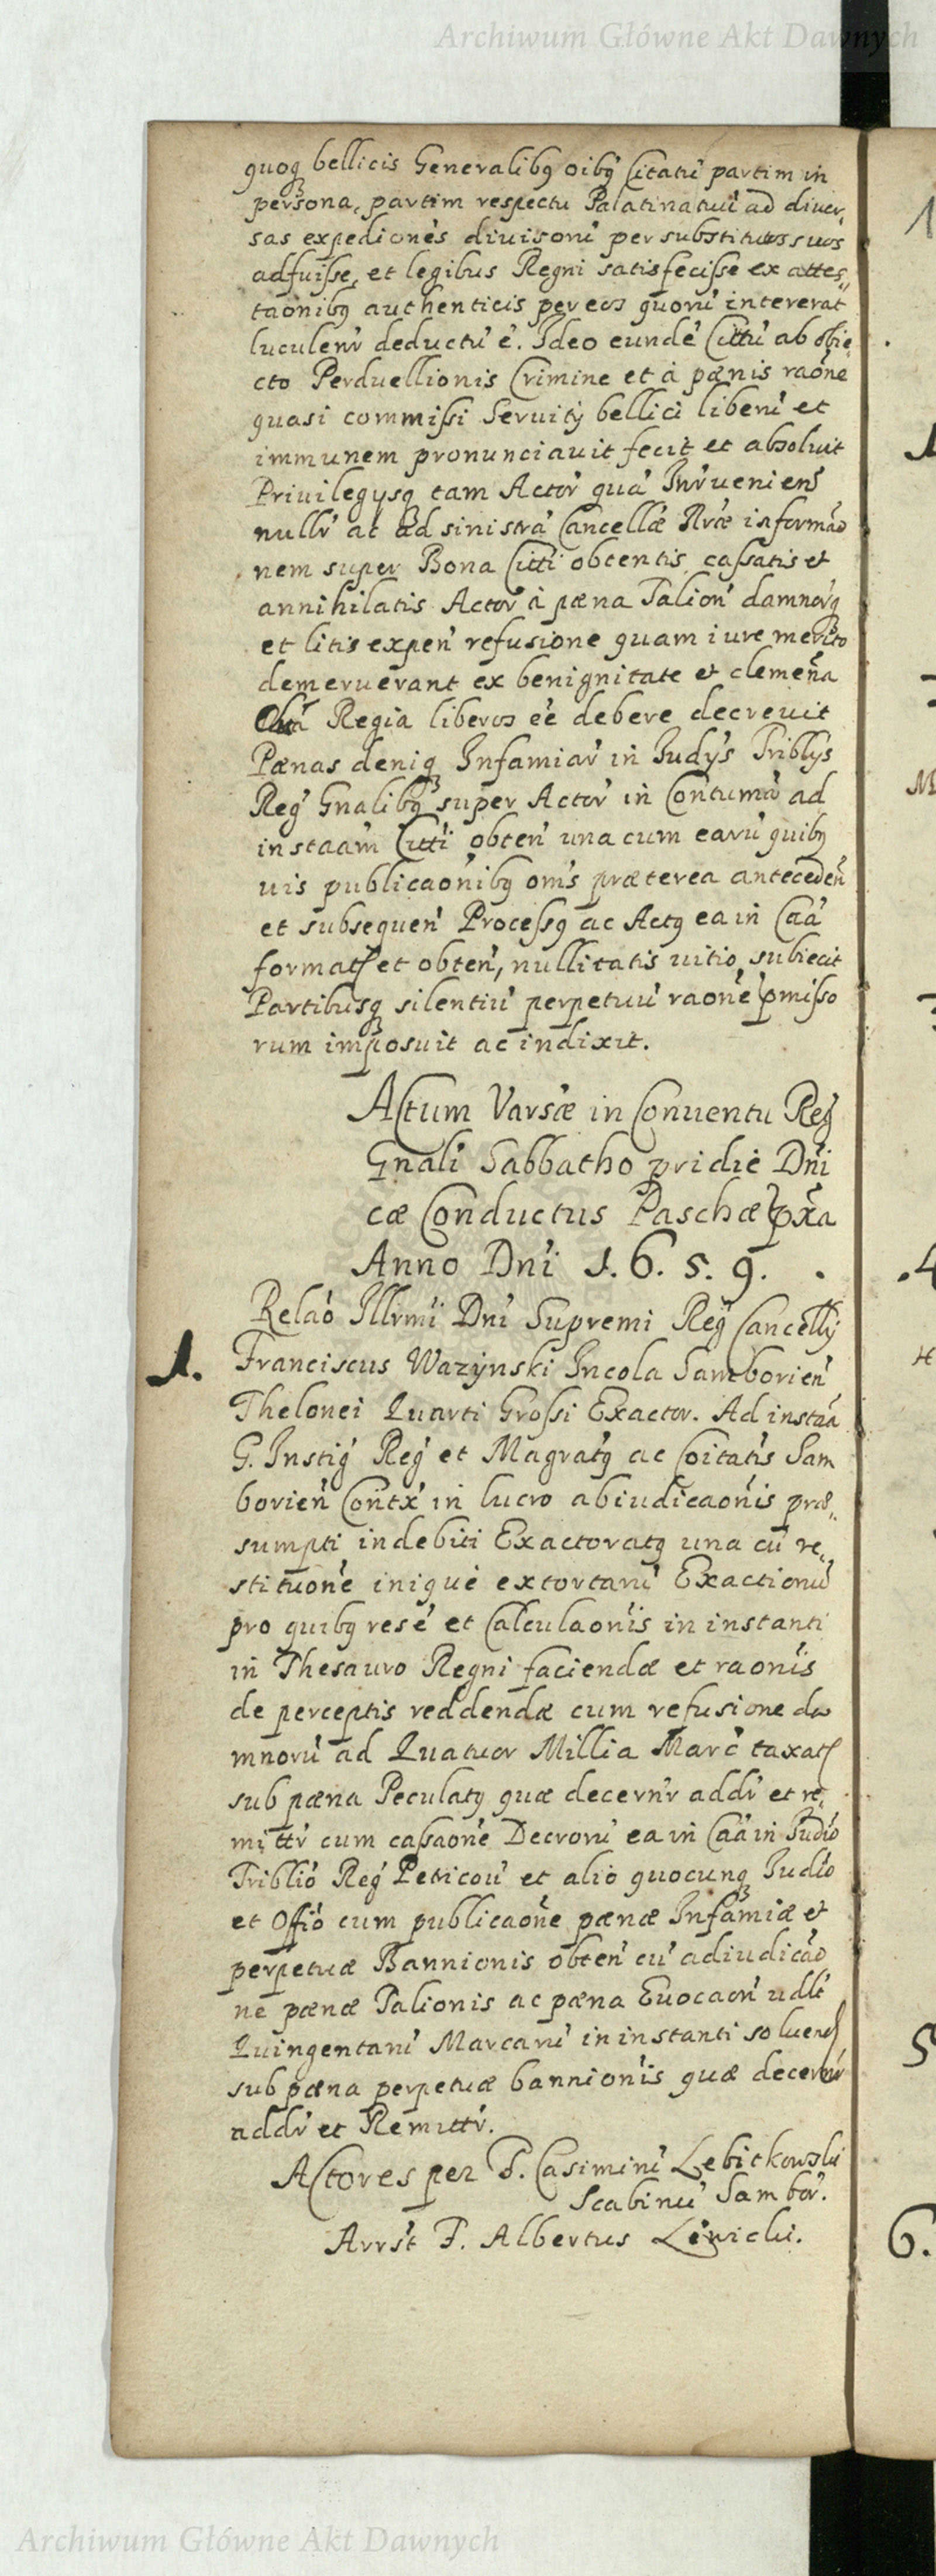 Archiwum Główne Akt Dawnych
quoq bellicis Generalibq oibq Citatu partim in
persona, partim respectu Palatinatuu ad diuer
sas expediones diuisoru per substitutos suos
adfuisse, et legibus Regni satisfecisse ex attes,,
taonibq authenticis per eos quoru intererat
luculenr deductu e. Ideo eunde Cittu ab obie
cto Perduellionis Crimine et à pænis raone
quasi commissi Seruitÿ bellici liberu et
immunem pronunciauit fecit et absoluit
Priuilegÿsq tam Actor qua Inrueniens
nullr ac ad sinistra Cancellæ Nræ informao
nem super Bona Citti obtentis, cassatis et
annihilatis Actor à pæna Talion damnorq
et litis expen refusione quam iure merito
demeruerant ex benignitate et clemena
Regia liberos eè debere decreuit
Pænas deniq Infamiar in Judÿs Triblÿs
Reg Gnalibq super Actor in Contuma ad
instaam Citti obten una cum earu quibq
uis publicaonibq oms præterea anteceden
et subsequen Processq ac Actq ea in Caa
format et obten, nullitatis uitio subiecit
Partibusq silentiu perpetuu raone pmisso
rum imposuit ac indixit.
Actum Varsiæ in Conuentu Reg
Gnali Sabbatho pridie Dni
cæ Conductus Paschæ pxa
Anno Dni 1. 6. 5. 9.
Relao Illrmi Dni Supremi Reg Cancellÿ
1. Franciscus Wazÿnski Incola Samborien
Thelonei Quarti Grossi Exactor. Ad instaa
G. Instig Reg et Magratq ac Coitatis Sam
borien Contx in lucro abiudicaonis præ,,
sumpti indebiti Exactoratq una cu re,,
stituone iniquè extortaru Exactionu
pro quibq rese et Calculaonis in instanti
in Thesauro Regni faciendæ et raonis
de perceptis reddendæ cum refusione da
mnoru ad Quatuor Millia Marc taxat
sub pæna Peculatq quæ decernr addi et re,,
mittr cum cassaone Decroru ea in Caa in Judio
Triblio Reg Petricou et alio quocunq Judio
et Offio cum publicaone pænæ Infamiæ et
perpetuæ Bannionis obten cu adiudicao
ne pænæ Talionis ac pæna Euocaon udlt
Quingentaru Marcaru in instanti soluend
sub pæna perpetuæ bannionis quæ decernr
addr et Remittr.
Actores per F. Casimiru Lebitkowski
Scabinu Sambor.
Arrst F. Albertus Lewicki.
Archiwum Główne Akt Dawnych